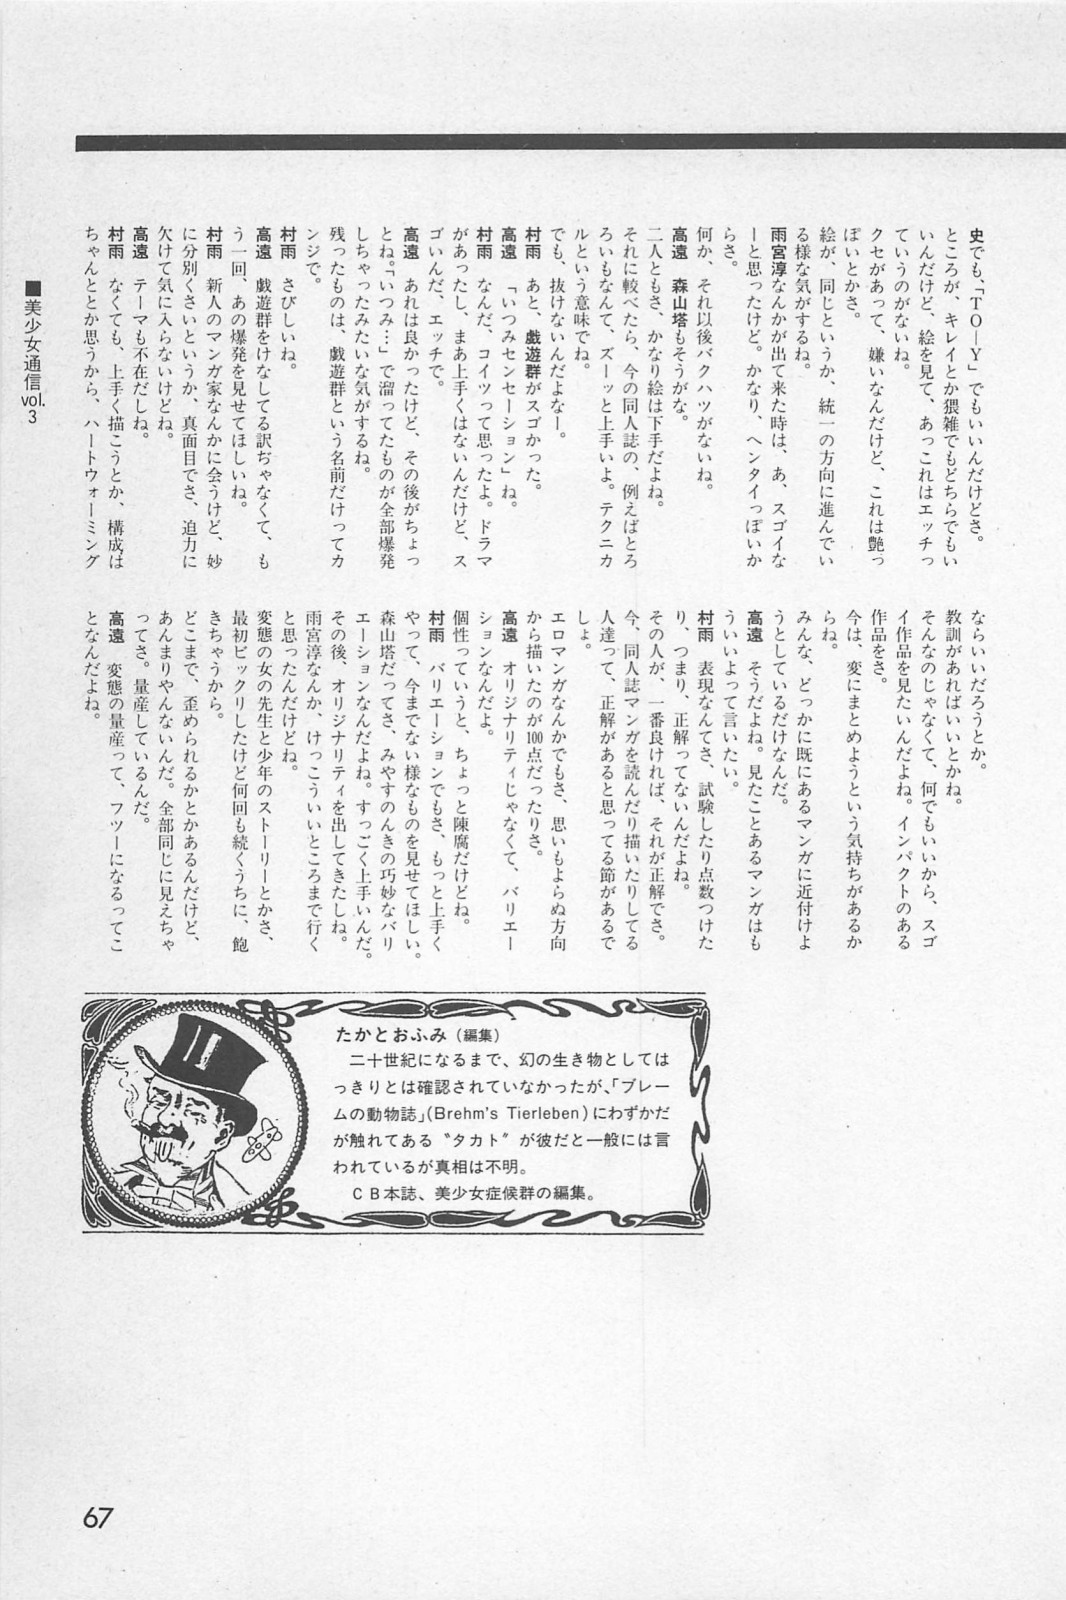 史でも、「TO―Y」でもいいんだけどさ。
ところが、キレイとか猥雑でもどちらでもい
いんだけど、絵を見て、あっこれはエッチっ
ていうのがないね。
クセがあって、嫌いなんだけど、これは艶っ
ぽいとかさ。
絵が、同じというか、統一の方向に進んでい
る様な気がするね。
雨宮淳なんかが出て来た時は、あ、スゴイな
ーと思ったけど。かなり、ヘンタイっぽいか
らさ。
何か、それ以後バクハツがないね。
高遠　森山塔もそうがな。
二人ともさ、かなり絵は下手だよね。
それに較べたら、今の同人誌の、例えばとろ
ろいもなんて、ズーッと上手いよ。テクニカ
ルという意味でね。
でも、抜けないんだよなー。
村雨　あと、戯遊群がスゴかった。
高遠　「いつみセンセーション」ね。
村雨　なんだ、コイツって思ったよ。ドラマ
があったし、まあ上手くはないんだけど、ス
ゴいんだ、エッチで。
高遠　あれは良かったけど、その後がちょっ
とね。「いつみ…」で溜ってたものが全部爆発
しちゃったみたいな気がするね。
残ったものは、戯遊群という名前だけってカ
ンジで。
村雨　さびしいね。
高遠　戯遊群をけなしてる訳ぢゃなくて、も
う一回、あの爆発を見せてほしいね。
村雨　新人のマンガ家なんかに会うけど、妙
に分別くさいというか、真面目でさ、迫力に
欠けて気に入らないけどね。
高遠　テーマも不在だしね。
村雨　なくても、上手く描こうとか、構成は
ちゃんととか思うから、ハートウォーミング
ならいいだろうとか。
教訓があればいいとかね。
そんなのじゃなくて、何でもいいから、スゴ
イ作品を見たいんだよね。インパクトのある
作品をさ。
今は、変にまとめようという気持ちがあるか
らね。
みんな、どっかに既にあるマンガに近付けよ
うとしているだけなんだ。
高遠　そうだよね。見たことあるマンガはも
ういいよって言いたい。
村雨　表現なんてさ、試験したり点数つけた
り、つまり、正解ってないんだよね。
その人が、一番良ければ、それが正解でさ。
今、同人誌マンガを読んだり描いたりしてる
人達って、正解があると思ってる節があるで
しょ。
エロマンガなんかでもさ、思いもよらぬ方向
から描いたのが100点だったりさ。
高遠　オリジナリティじゃなくて、バリエー
ションなんだよ。
個性っていうと、ちょっと陳腐だけどね。
村雨　バリエーションでもさ、もっと上手く
やって、今までない様なものを見せてほしい。
森山塔だってさ、みやすのんきの巧妙なバリ
エーションなんだよね。すっごく上手いんだ。
その後、オリジナリティを出してきたしね。
雨宮淳なんか、けっこういいところまで行く
と思ったんだけどね。
変態の女の先生と少年のストーリーとかさ、
最初ビックリしたけど何回も続くうちに、飽
きちゃうから。
どこまで、歪められるかとかあるんだけど、
あんまりやんないんだ。全部同じに見えちゃ
ってさ。量産しているんだ。
高遠　変態の量産って、フツーになるってこ
となんだよね。
たかとおふみ（編集）
二十世紀になるまで、幻の生き物としては
っきりとは確認されていなかったが、「ブレー
ムの動物誌」(Brehm's Tierleben)にわずかだ
が触れてある〝タカト〟が彼だと一般には言
われているが真相は不明。
ＣＢ本誌、美少女症候群の編集。
■美少女通信vol.3
67